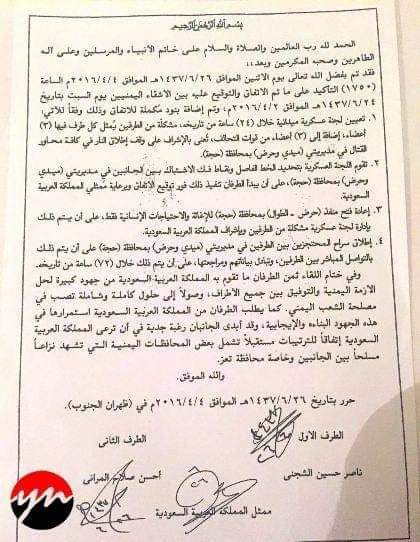 بسم الله الرحمن الرحيم
الحمد لله رب العالمين والصلاة والسلام على خاتم الأنبياء والمرسلين وعلى آله
الطاهرين وصحبه المكرمين وبعد،،،
فقد تم بفضل الله تعالى يوم الاثنين ١٤٣٧/٦/٢٦هـ الموافق ٢٠١٦/٤/٤م الساعة
(١٧٥٠) التأكيد على ما تم الاتفاق والتوقيع عليه بين الأشقاء اليمنيين يوم السبت بتاريخ
١٤٣٧/٦/٢٤هـ الموافق ٢٠١٦/٤/٢م، وتم إضافة بنود مكملة للاتفاق وذلك وفقاً للآتي:
١. تعيين لجنة عسكرية ميدانية خلال (٢٤) ساعة من تاريخه، مشكلة من الطرفين يُمثل كل طرف فيها (٣)
أعضاء، إضافة إلى (٣) أعضاء من قوات التحالف، تُعنى بالإشراف على وقف إطلاق النار في كافة محاور
القتال في مديريتي (ميدي وحرض) بمحافظة (حجة).
٢. تقوم اللجنة العسكرية بتحديد الخط الفاصل ونقاط فك الاشتباك بين الجانبين في مديريتي (ميدي
وحرض) بمحافظة (حجة)، على أن يبدأ الطرفان تنفيذ ذلك فور توقيع الاتفاق وبرعاية ممثلي المملكة العربية
السعودية.
٣. إعادة فتح منفذ (حرض - الطوال) بمحافظة (حجة) للإغاثة والاحتياجات الإنسانية فقط، على أن يتم ذلك
بإدارة لجنة عسكرية مشكلة من الطرفين وبإشراف المملكة العربية السعودية.
٤. إطلاق سراح المحتجزين بين الطرفين في مديريتي (ميدي وحرض) بمحافظة (حجة) على أن يتم ذلك
بالتواصل المباشر بين الطرفين، وتبادل بياناتهم ومراجعتها، على أن يتم ذلك خلال (٧٢) ساعة من تاريخه.
وفي ختام اللقاء ثمن الطرفان ما تقوم به المملكة العربية السعودية من جهود كبيرة لحل
الأزمة اليمنية والتوفيق بين جميع الأطراف، وصولاً إلى حلول كاملة وشاملة تصب في
مصلحة الشعب اليمني. كما يطلب الطرفان من المملكة العربية السعودية استمرارها في
هذه الجهود البناءة والإيجابية، وقد أبدى الجانبان رغبة جدية في أن ترعى المملكة العربية
السعودية إتفاقاً للترتيبات مستقبلاً تشمل بعض المحافظات اليمنية التي تشهد نزاعاً
مسلحاً بين الجانبين وخاصة محافظة تعز.
والله الموفق.
حرر بتاريخ ١٤٣٧/٦/٢٦هـ الموافق ٢٠١٦/٤/٤م في (ظهران الجنوب).
الطرف الأول الطرف الثاني
ناصر حسين الشجني أحسن صلاح المراني
ممثل المملكة العربية السعودية
yn